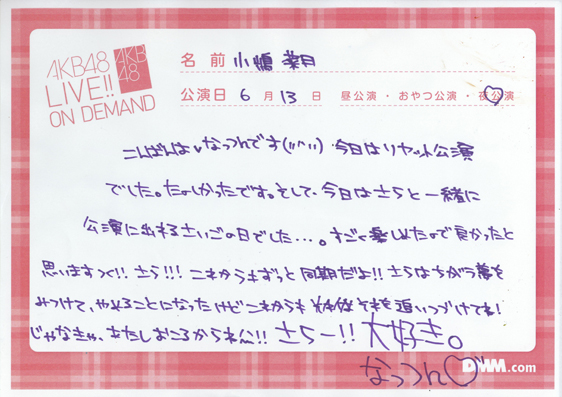 AKB48
LIVE!!
ON DEMAND
AKB
48
名前 小嶋 菜月
公演日 6月13日 昼公演・おやつ公演・夜公演
こんばんは♥なっつんです(((^^))) 今日はリセット公演
でした。たのしかったです。そして、今日はさらと一緒に
公演に出れるさいごの日でした…。すごく楽しめたので良かったと
思いますっ!! さら!!! これからもずっと同期だよ!! さらはちがう夢を
みつけて、やめることになったけどこれからも それを追いつづけてね!
じゃなきゃ、あたしおこるからね!! さらー!! 大好き。
なっつん♡
DMM.com